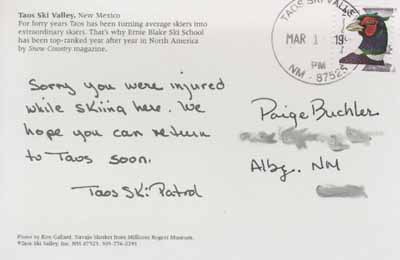 Taos Ski Valley, New Mexico
For forty years Taos has been turning average skiers into
extraordinary skiers. That's why Ernie Blake Ski School
has been top-ranked year after year in North America
by Snow Country magazine.
TAOS SKI VALLEY
MAR 1
19
PM
NM - 87525
Sorry you were injured
while skiing here. We
hope you can return
to Taos soon.
Taos Ski Patrol
Paige Buchler
Albq. NM
Photos by Ken Gallard, Navajo blanket from Millicent Rogers Museum.
©Taos Ski Valley, Inc. NM 87525, 505-776-2291